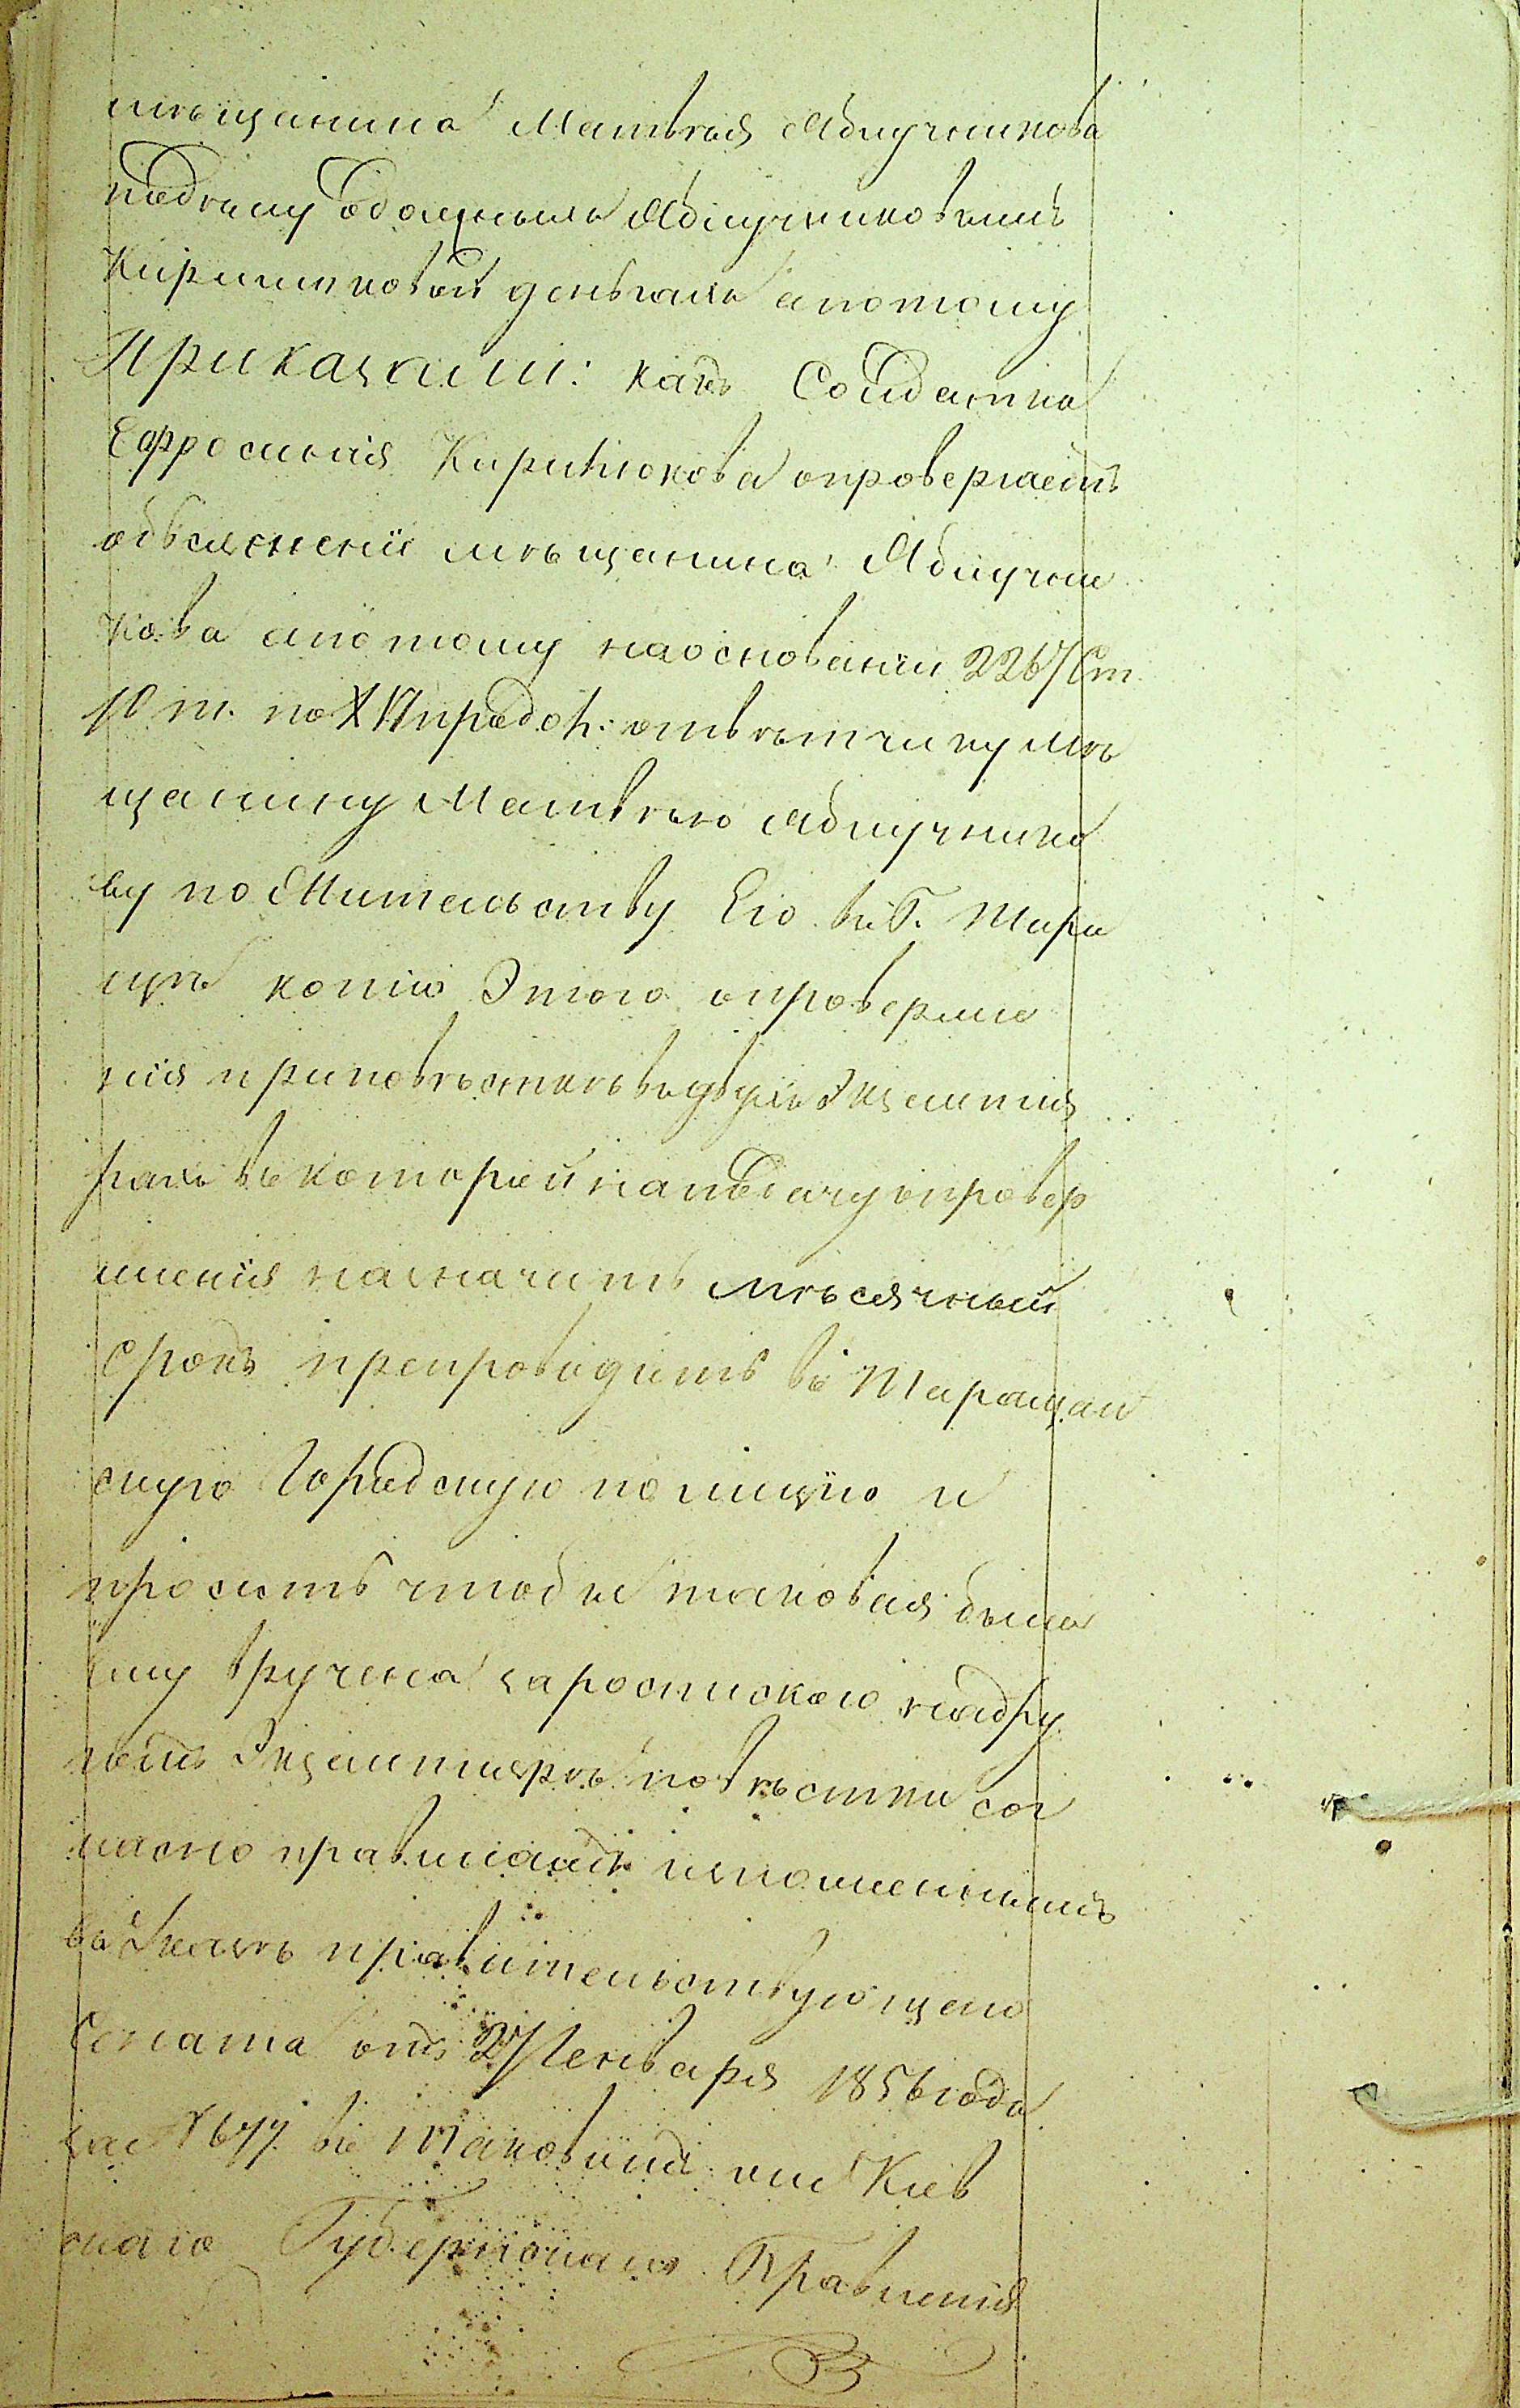 мѣщанина Матвѣя Яблучникова
по дѣлу о должныхъ Яблучниковымъ
Кирилюковой деньгахъ а потому
Приказали: какъ Солдатка
Ефросинія Кирилюкова опровергаетъ
объясненіе мѣщанина Яблучни
кова а по тому на основаніи 2267 Ст
10 т. по XVI прод. отвѣтчику мѣ
щанину Матвѣю Яблучнико
ву по Жительству Его въ г. Тара
щѣ копію Этого опроверже
нія при повѣсткѣ въ двухъ Экземпля
рахъ въ которой на подачу опровер
женія назначить мѣсячный
срокъ препроводить въ Таращан
скую Городскую полицію и
просить чтобы таковая была
ему вручена за роспискою на дру
гомъ Экземплярѣ повѣстки сог
ласно правиламъ изложеннымъ
въ Указѣ правительствующаго
Сената отъ 27 Января 1856 года
за № 677 въ таковыхъ же Кіев
скаго Губернскаго Правленія